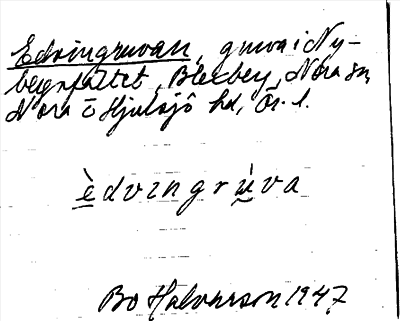 Edvingruvan, gruva i Ny-
bergsfältet, Blexberg, Nora sn,
Nora o Hjulsjö hd, Ör. l.
èdvingrùva
Bo Halvarson 1947.